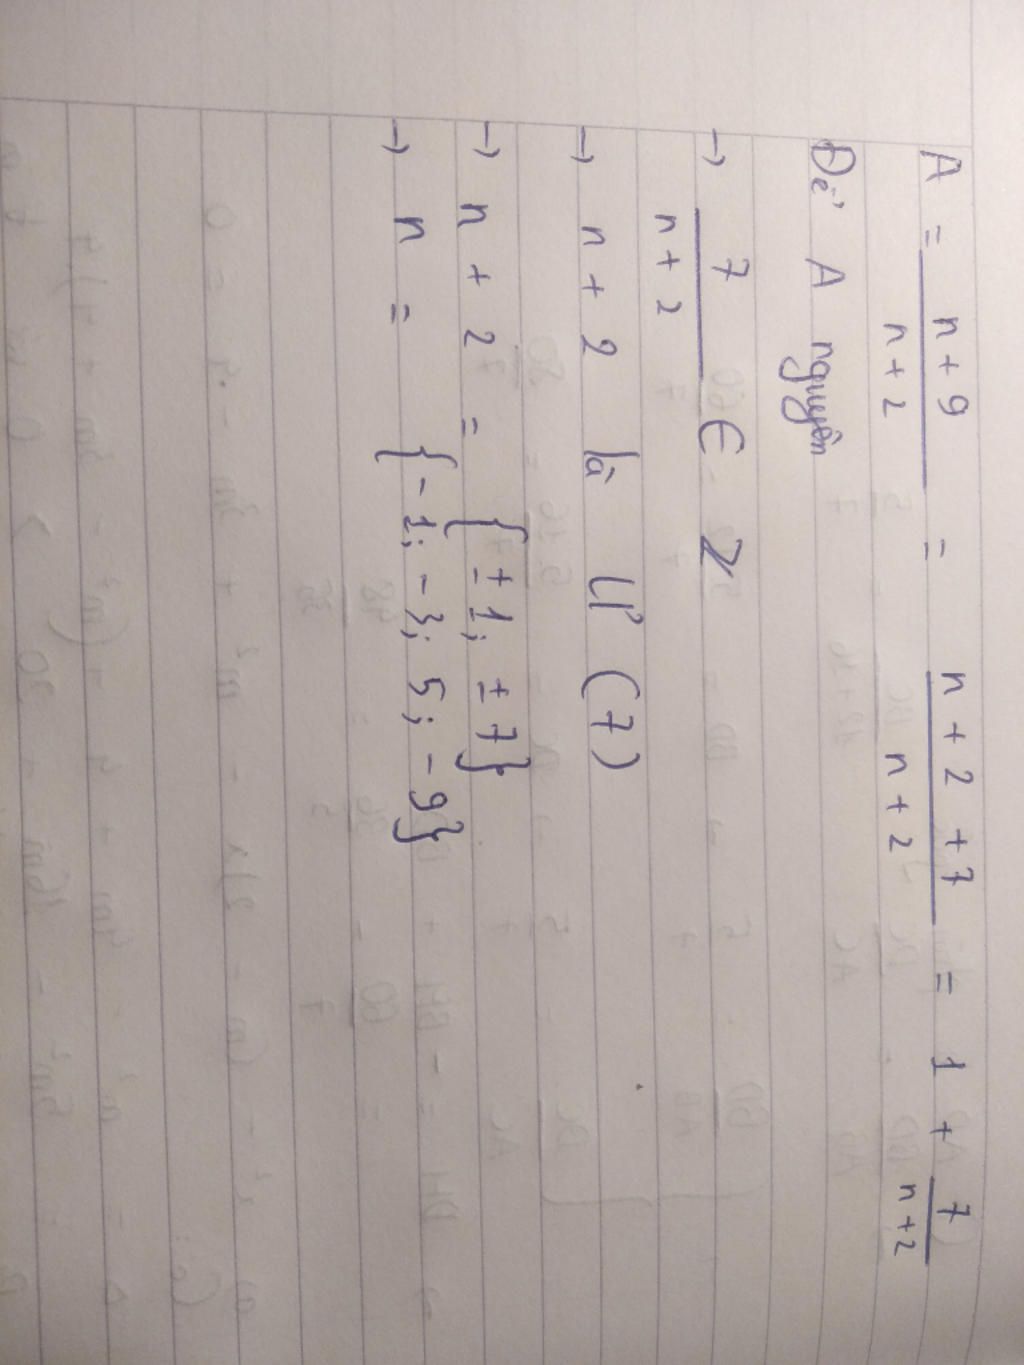 A = \frac{n + 9}{n + 2} = \frac{n + 2 + 7}{n + 2} = 1 + \frac{7}{n + 2}
Để A nguyên
→ \frac{7}{n + 2} ∈ Z
→ n + 2 là Ư (7)
→ n + 2 = {± 1; ± 7}
→ n = {- 1; - 3; 5; - 9}